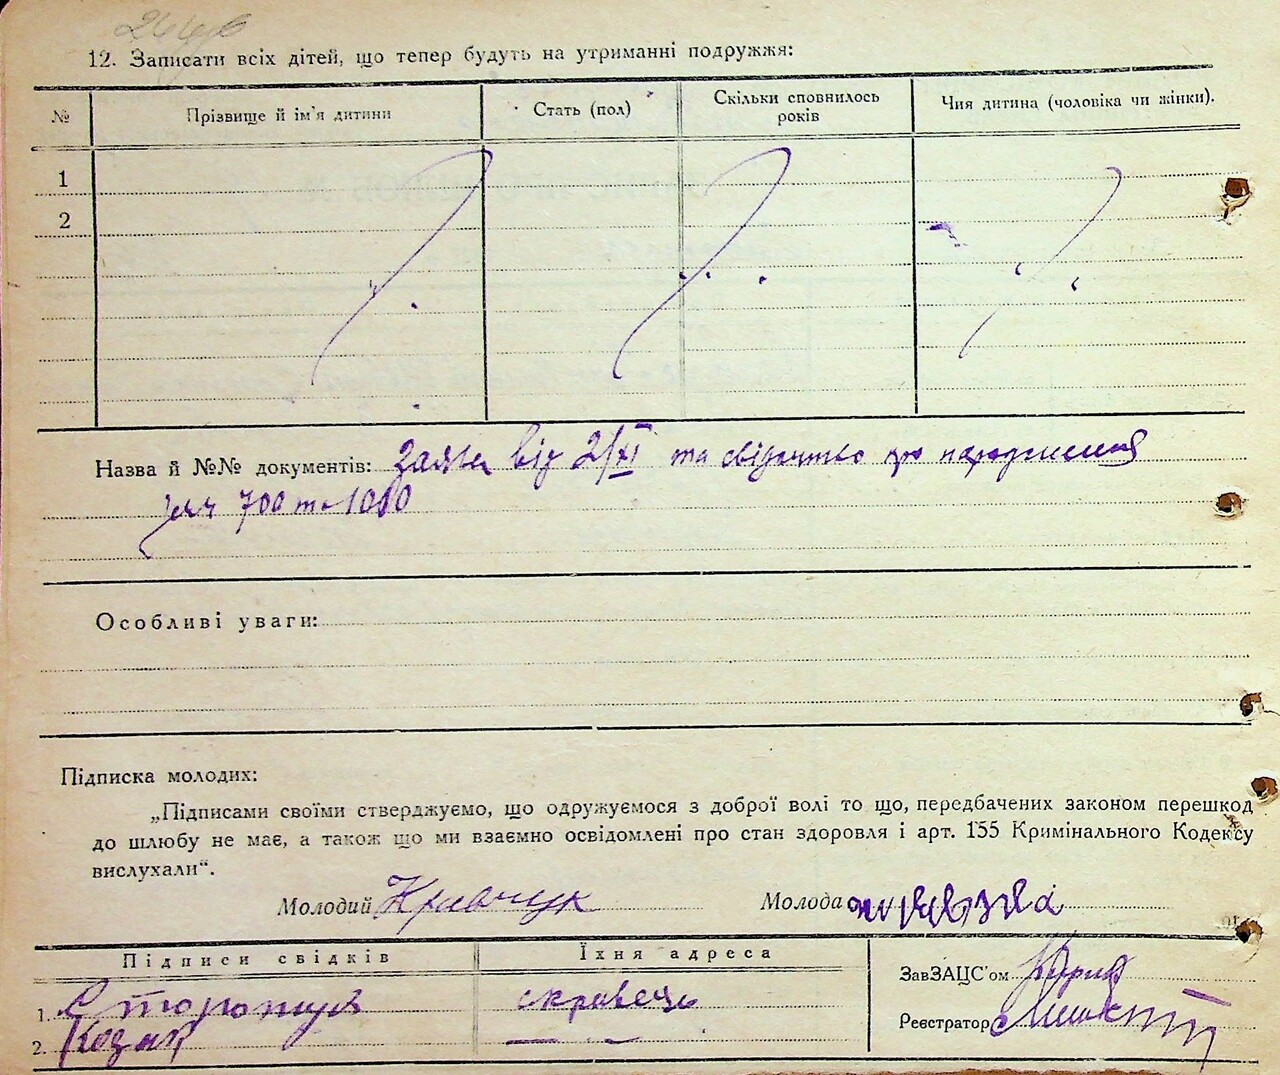 12. Записати всіх дітей, що тепер будуть на утриманні подружжя:
№ Прізвище й ім'я дитини Стать (пол) Скільки сповнилось років Чия дитина (чоловіка чи жінки).
1
2
Назва й №№ документів: заява від 2/XI та свідоцтво про народження
700 та 1080
Особливі уваги:
Підписка молодих:
„Підписами своїми стверджуємо, що одружуємося з доброї волі то що, передбачених законом перешкод
до шлюбу не має, а також що ми взаємно освідомлені про стан здоровля і арт. 155 Кримінального Кодексу
вислухали“.
Молодий Кравчук Молода
Підписи свідків Їхня адреса
ЗавЗАЦС'ом
1. Сторожук
Реєстратор
2. Козак